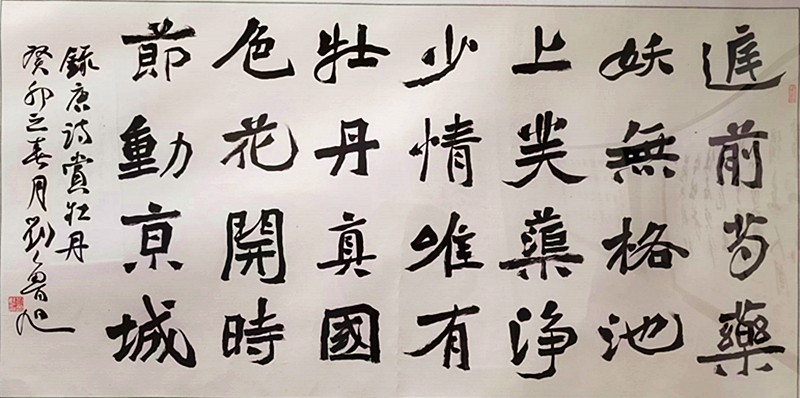 庭前芍藥
妖無格池
上芙蕖淨
少情唯有
牡丹真國
色花開時
節動京城
錄唐詩賞牡丹
癸卯之春月劉魯旭